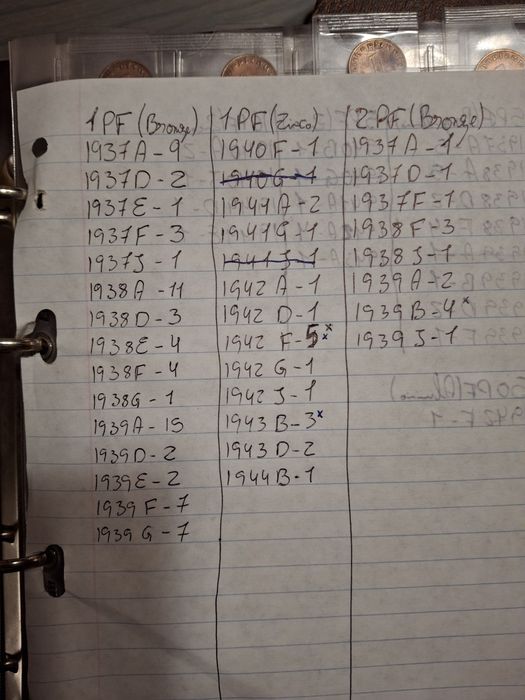 1PF (Bronze)
1937A - 9
1937D - 2
1937E - 1
1937F - 3
1937J - 1
1938A - 11
1938D - 3
1938E - 4
1938F - 4
1938G - 1
1939A - 15
1939D - 2
1939E - 2
1939F - 7
1939G - 7
1PF (Zinco)
1940F - 1
1940G - 1
1941A - 2
1941G - 1
1941J - 1
1942A - 1
1942D - 1
1942F - 5 x x
1942G - 1
1942J - 1
1943B - 3 x
1943D - 2
1944B - 1
2PF (Bronze)
1937A - 1
1937D - 1
1937F - 1
1938F - 3
1938J - 1
1939A - 2
1939B - 4 x
1939J - 1